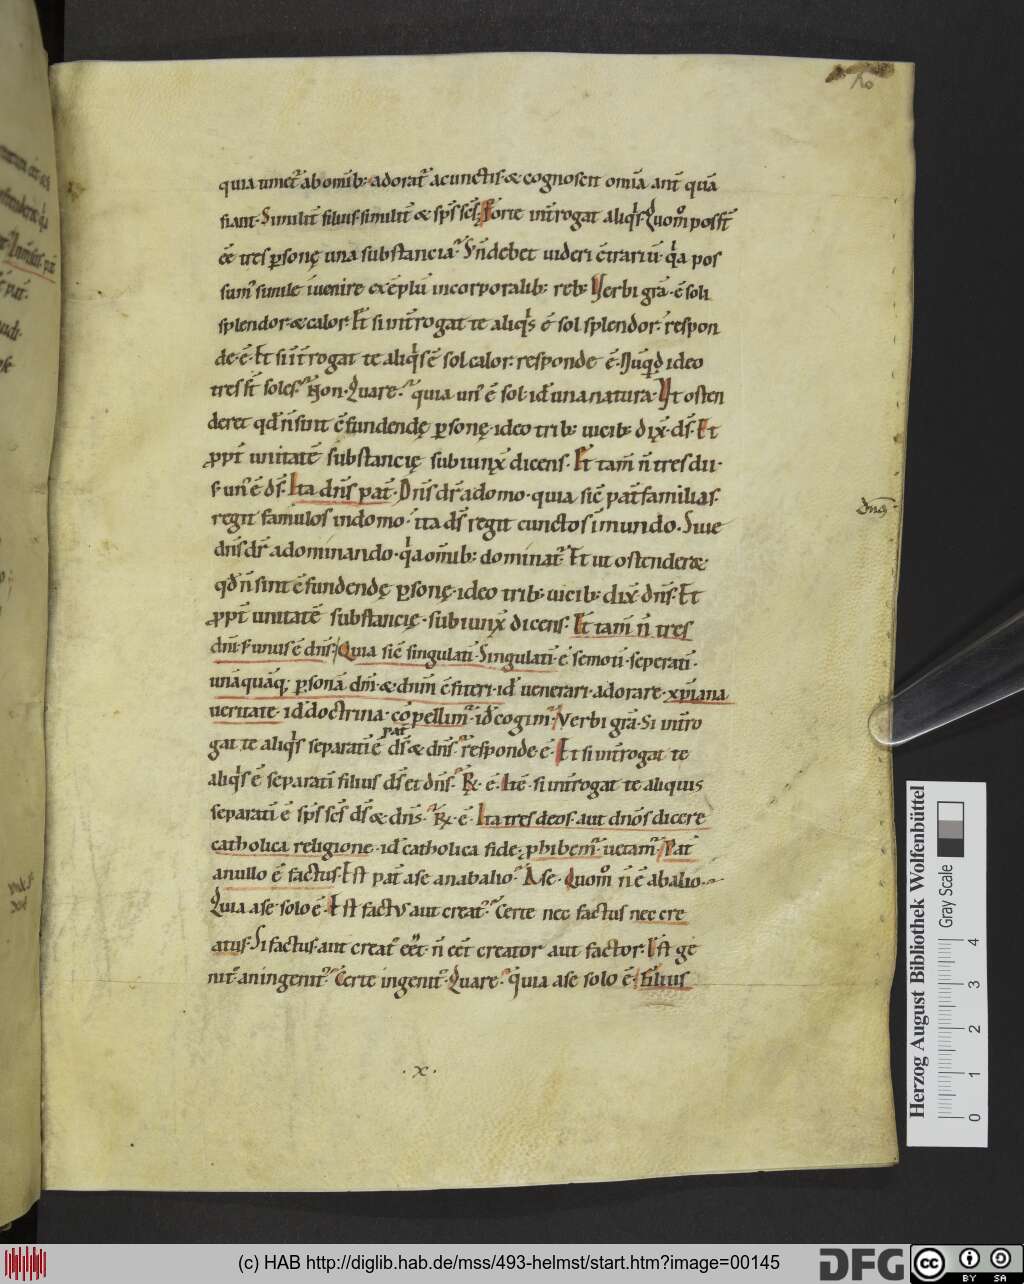 quia timet᷑ ab omīb: adorat᷑ a cunctis· & cognoscit om̄ia ant̄ quā
fiant· Similit̄ filius· similit̄ & sp̄s sc̄s· Forte int̄rogat aliq̇s· Quom̊ poss̄t
ēē tres p̱sonę una substancia· N̄ debet uideri c̄trariū· q̇a pos
sum᷒ simile īuenire exēplū incorporalib: reb: Verbi grā· ē soli
splendor· & calor· Et si int̄rogat te aliq̇s ē sol splendor· respon
de· ē· Et si īt̄rogat te aliq̇s ē sol calor· responde ē· Nūq̇d ideo
tres st̄ soles· Non· Quare· quia un᷒ ē sol id᷒ una natura· Vt osten
deret qd̄ n̄ sint c̄fundendę p̱sonę· ideo trib: uicib: dix̄· ds̄· Et
p̱pt̄ unitatē substancię subiunx̄ dicens· Et tam̄ n̄ tres dii·
s· un᷒ ē ds̄· Ita dn̄s pat̄· Dn̄s dr̄ a domo· quia sic̄ pat̄familias
regit famulos in domo· ita ds̄ regit cunctos ī mundo· Siue
dn̄s dr̄ a dominando· q̇a om̄ib: dominat᷑· Et ut ostender&
qd̄ n̄ sint c̄fundendę p̱sonę· ideo trib: uicib: dix̄ dn̄s· Et
p̱pt̄ unitatē substancię· subiunx̄ dicens· Et tam̄ n̄ tres
dn̄i· s· unus ē dn̄s· Quia sic̄ singulati· Singulati· ē semoti· seperati·
unāquāq; p̱sonā dm̄· & dnm̄ c̄fiteri· id᷒ uenerari· adorare· xp̄iana
ueritate· id᷒ doctrina· cōpellim᷒· id᷒ cogim᷒· Verbi grā· Si int̄ro
pat̄
gat te aliq̇s separati ē ds̄ & dn̄s· responde ē· Et si int̄rogat te
aliq̇s ē separati filius ds̄ et dn̄s· R̄· ē· Itē· si int̄rogat te aliquis
separati ē sp̄s sc̄s ds̄ & dn̄s· R̄· ē· Ita tres deos· aut dn̄os dicere
catholica religione· id᷒ catholica fide· p̱hibem᷒· uetam᷒· Pat̄
a nullo ē factus· Est pat̄ a se an ab alio· A se· Quom̊ n̄ ē ab alio·
Quia a se solo ē· Est factus aut creat᷒· Certe nec factus nec cre
atus· Si factus aut creat᷒ eēt· n̄ eēt creator aut factor· Est ge
nit᷒ an ingenit᷒· Certe ingenit᷒· Quare· quia a se solo ē· Filius
· x ·
dn̄s
Herzog August Bibliothek Wolfenbüttel
Gray Scale
0 1 2 3 4
(c) HAB http://diglib.hab.de/mss/493-helmst/start.htm?image=00145
DFG
cc BY SA